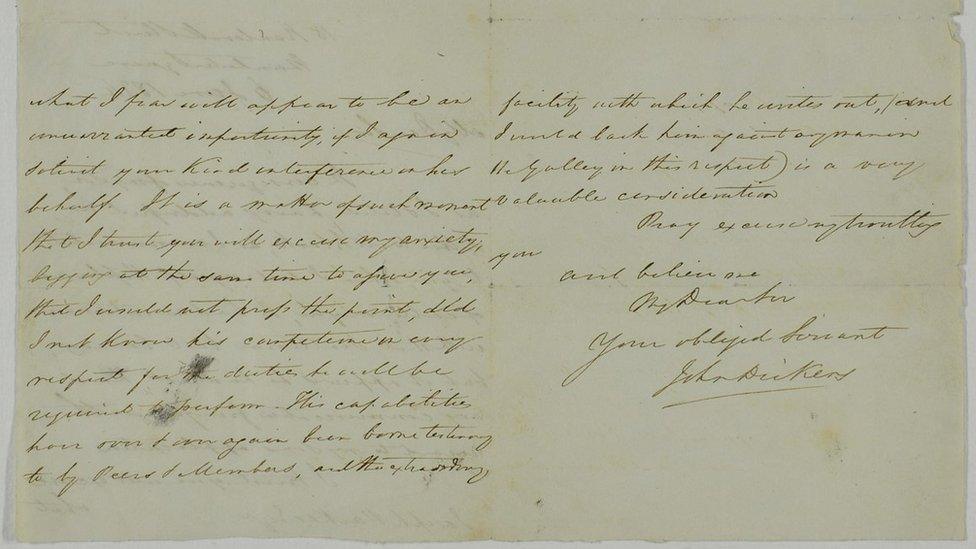 what I fear will appear to be an
unwarranted importunity, if I again
solicit your kind interference in his
behalf. It is a matter of such moment
that I trust you will excuse my anxiety,
begging at the same time to assure you,
that I would not press the point, did
I not know his competence in every
respect for the duties he will be
required to perform. His capabilities
have over & over again been borne testimony
to by Peers & Members, and the extraordinary
facility with which he writes out, (and
I would back him against any man in
the Galley in this respect) is a very
valuable consideration
Pray excuse my troubling
you
and believe me
My Dear Sir
Your obliged Servant
John Dickens